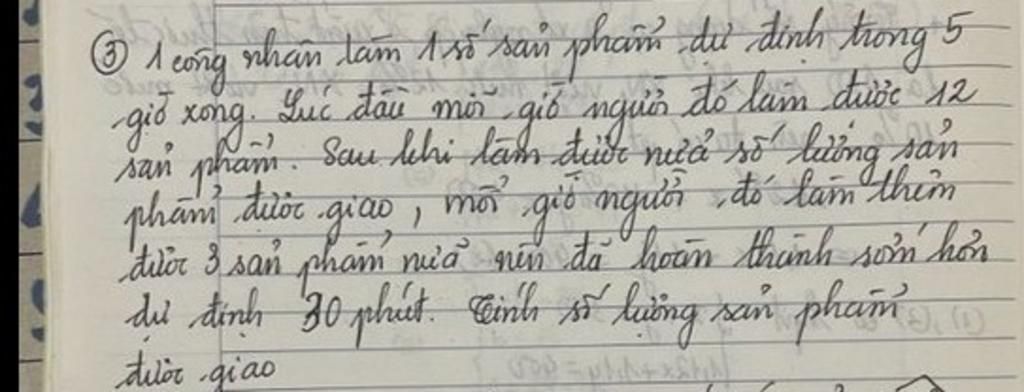 ③ 1 công nhân làm 1 số sản phẩm dự định trong 5
giờ xong. Lúc đầu mỗi giờ người đó làm được 12
sản phẩm. Sau khi làm được nửa số lượng sản
phẩm được giao, mỗi giờ người đó làm thêm
được 3 sản phẩm nữa nên đã hoàn thành sớm hơn
dự định 30 phút. Tính số lượng sản phẩm
được giao